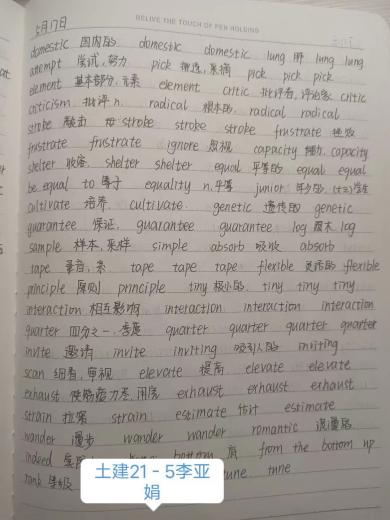 5月17日
RELIVE THE TOUCH OF PEN HOLDING
domestic 国内的 domestic domestic lung 肺 lung lung
attempt 尝试,努力 pick 挑选,采摘 pick pick pick
element 基本部分,元素 element critic 批评者,评论家 critic
criticism 批评 n. radical 根本的 radical radical
stroke stroke stroke stroke frustrate 挫败
frustrate frustrate ignore 忽视 capacity 能力 capacity
shelter 收容 shelter shelter equal 平等的 equal equal
be equal to 等于 equality n.平等 junior 年少的
cultivate 培养 cultivate genetic 遗传的 genetic
guarantee 保证 guarantee guarantee log 原木 log
sample 样本,采样 simple absorb 吸收 absorb
tape 录音,条 tape tape tape flexible 灵活的 flexible
principle 原则 principle tiny 极小的 tiny tiny tiny
interaction 相互影响 interaction interaction interaction
quarter 四分之一,季度 quarter quarter quarter quarter
invite 邀请 invite inviting 吸引人的 inviting
scan 细看,审视 elevate 提高 elevate elevate
exhaust 使筋疲力尽,用尽 exhaust exhaust exhaust
strain 拉紧 strain estimate 估计 estimate
wander 漫步 wander wander romantic 浪漫的
indeed bottom 底 from the bottom up
rank 等级 tune tune
土建21-5李亚
娟